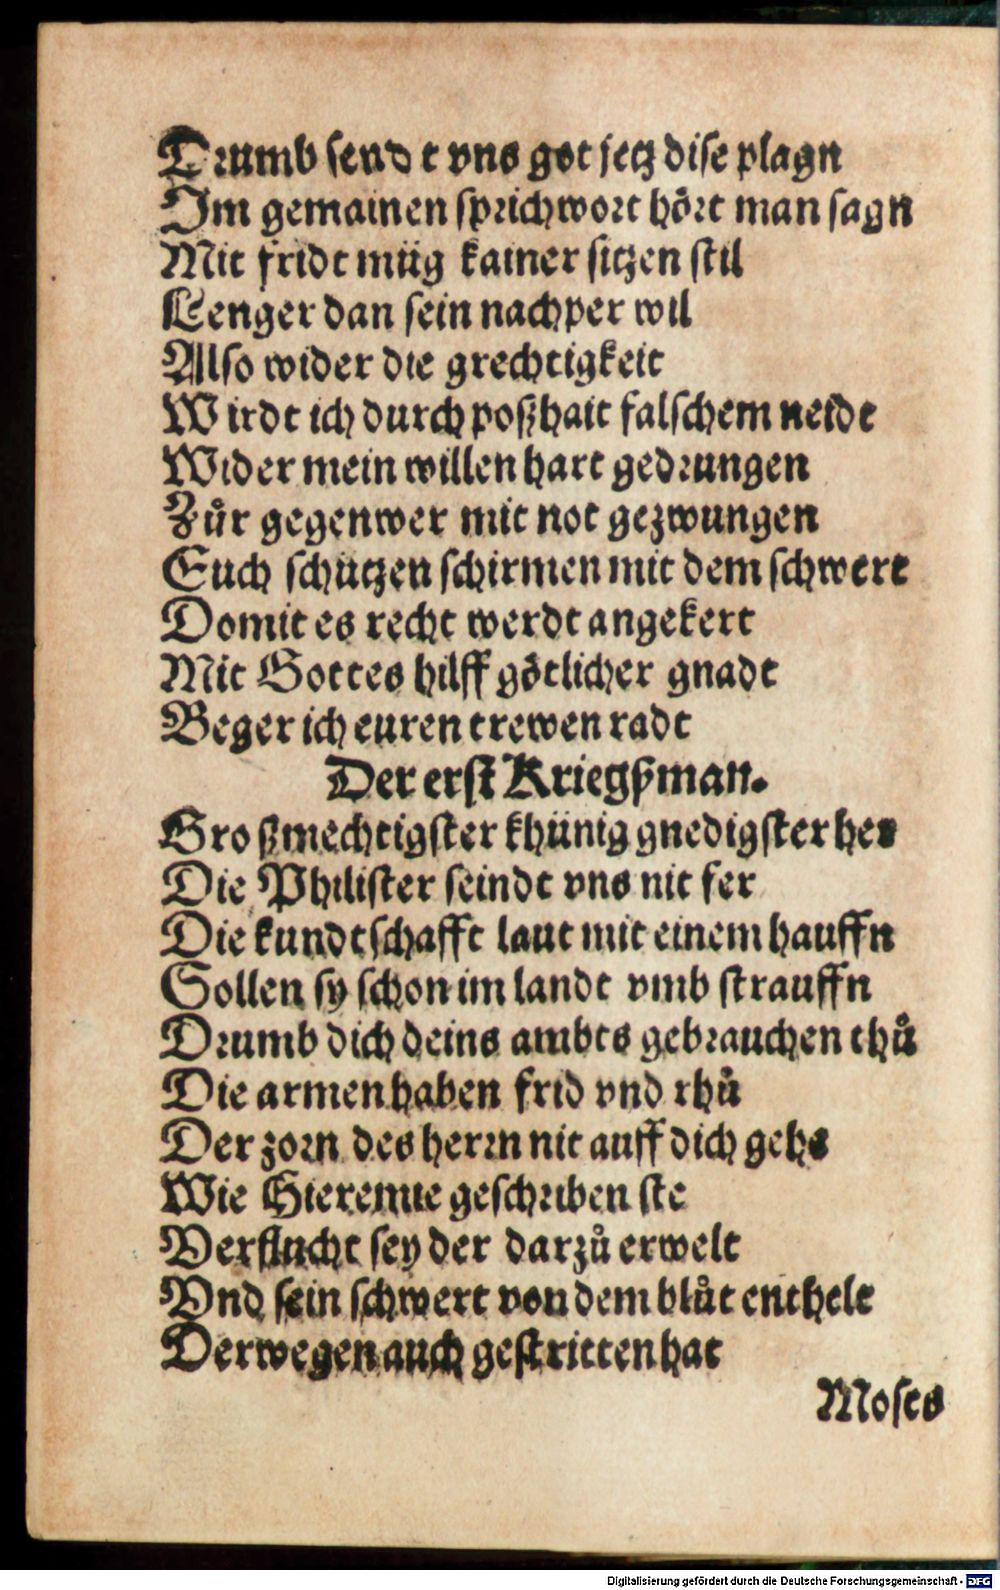 Drumb sendt vns got jetz dise plagn
Im gemainen sprichwort hört man sagn
Mit fridt müg kainer sitzen stil
Lenger dan sein nachper wil
Also wider die grechtigkeit
Wirdt ich durch poßhait falschem neidt
Wider mein willen hart gedrungen
Zůr gegenwer mit not gezwungen
Euch schützen schirmen mit dem schwert
Domit es recht werdt angekert
Mit Gottes hilff götlicher gnadt
Beger ich euren trewen radt
Der erst Kriegßman.
Großmechtigster khünig gnedigster her
Die Philister seindt vns nit fer
Die kundtschafft laut mit einem hauffn
Sollen sy schon im landt vmb strauffn
Drumb dich deins ambts gebrauchen thů
Die armen haben frid vnd rhů
Der zorn des herrn nit auff dich gehe
Wie Hieremie geschriben ste
Verflucht sey der darzů erwelt
Vnd sein schwert von dem blůt enthelt
Derwegen auch gestritten hat
Moses
Digitalisierung gefördert durch die Deutsche Forschungsgemeinschaft - DFG